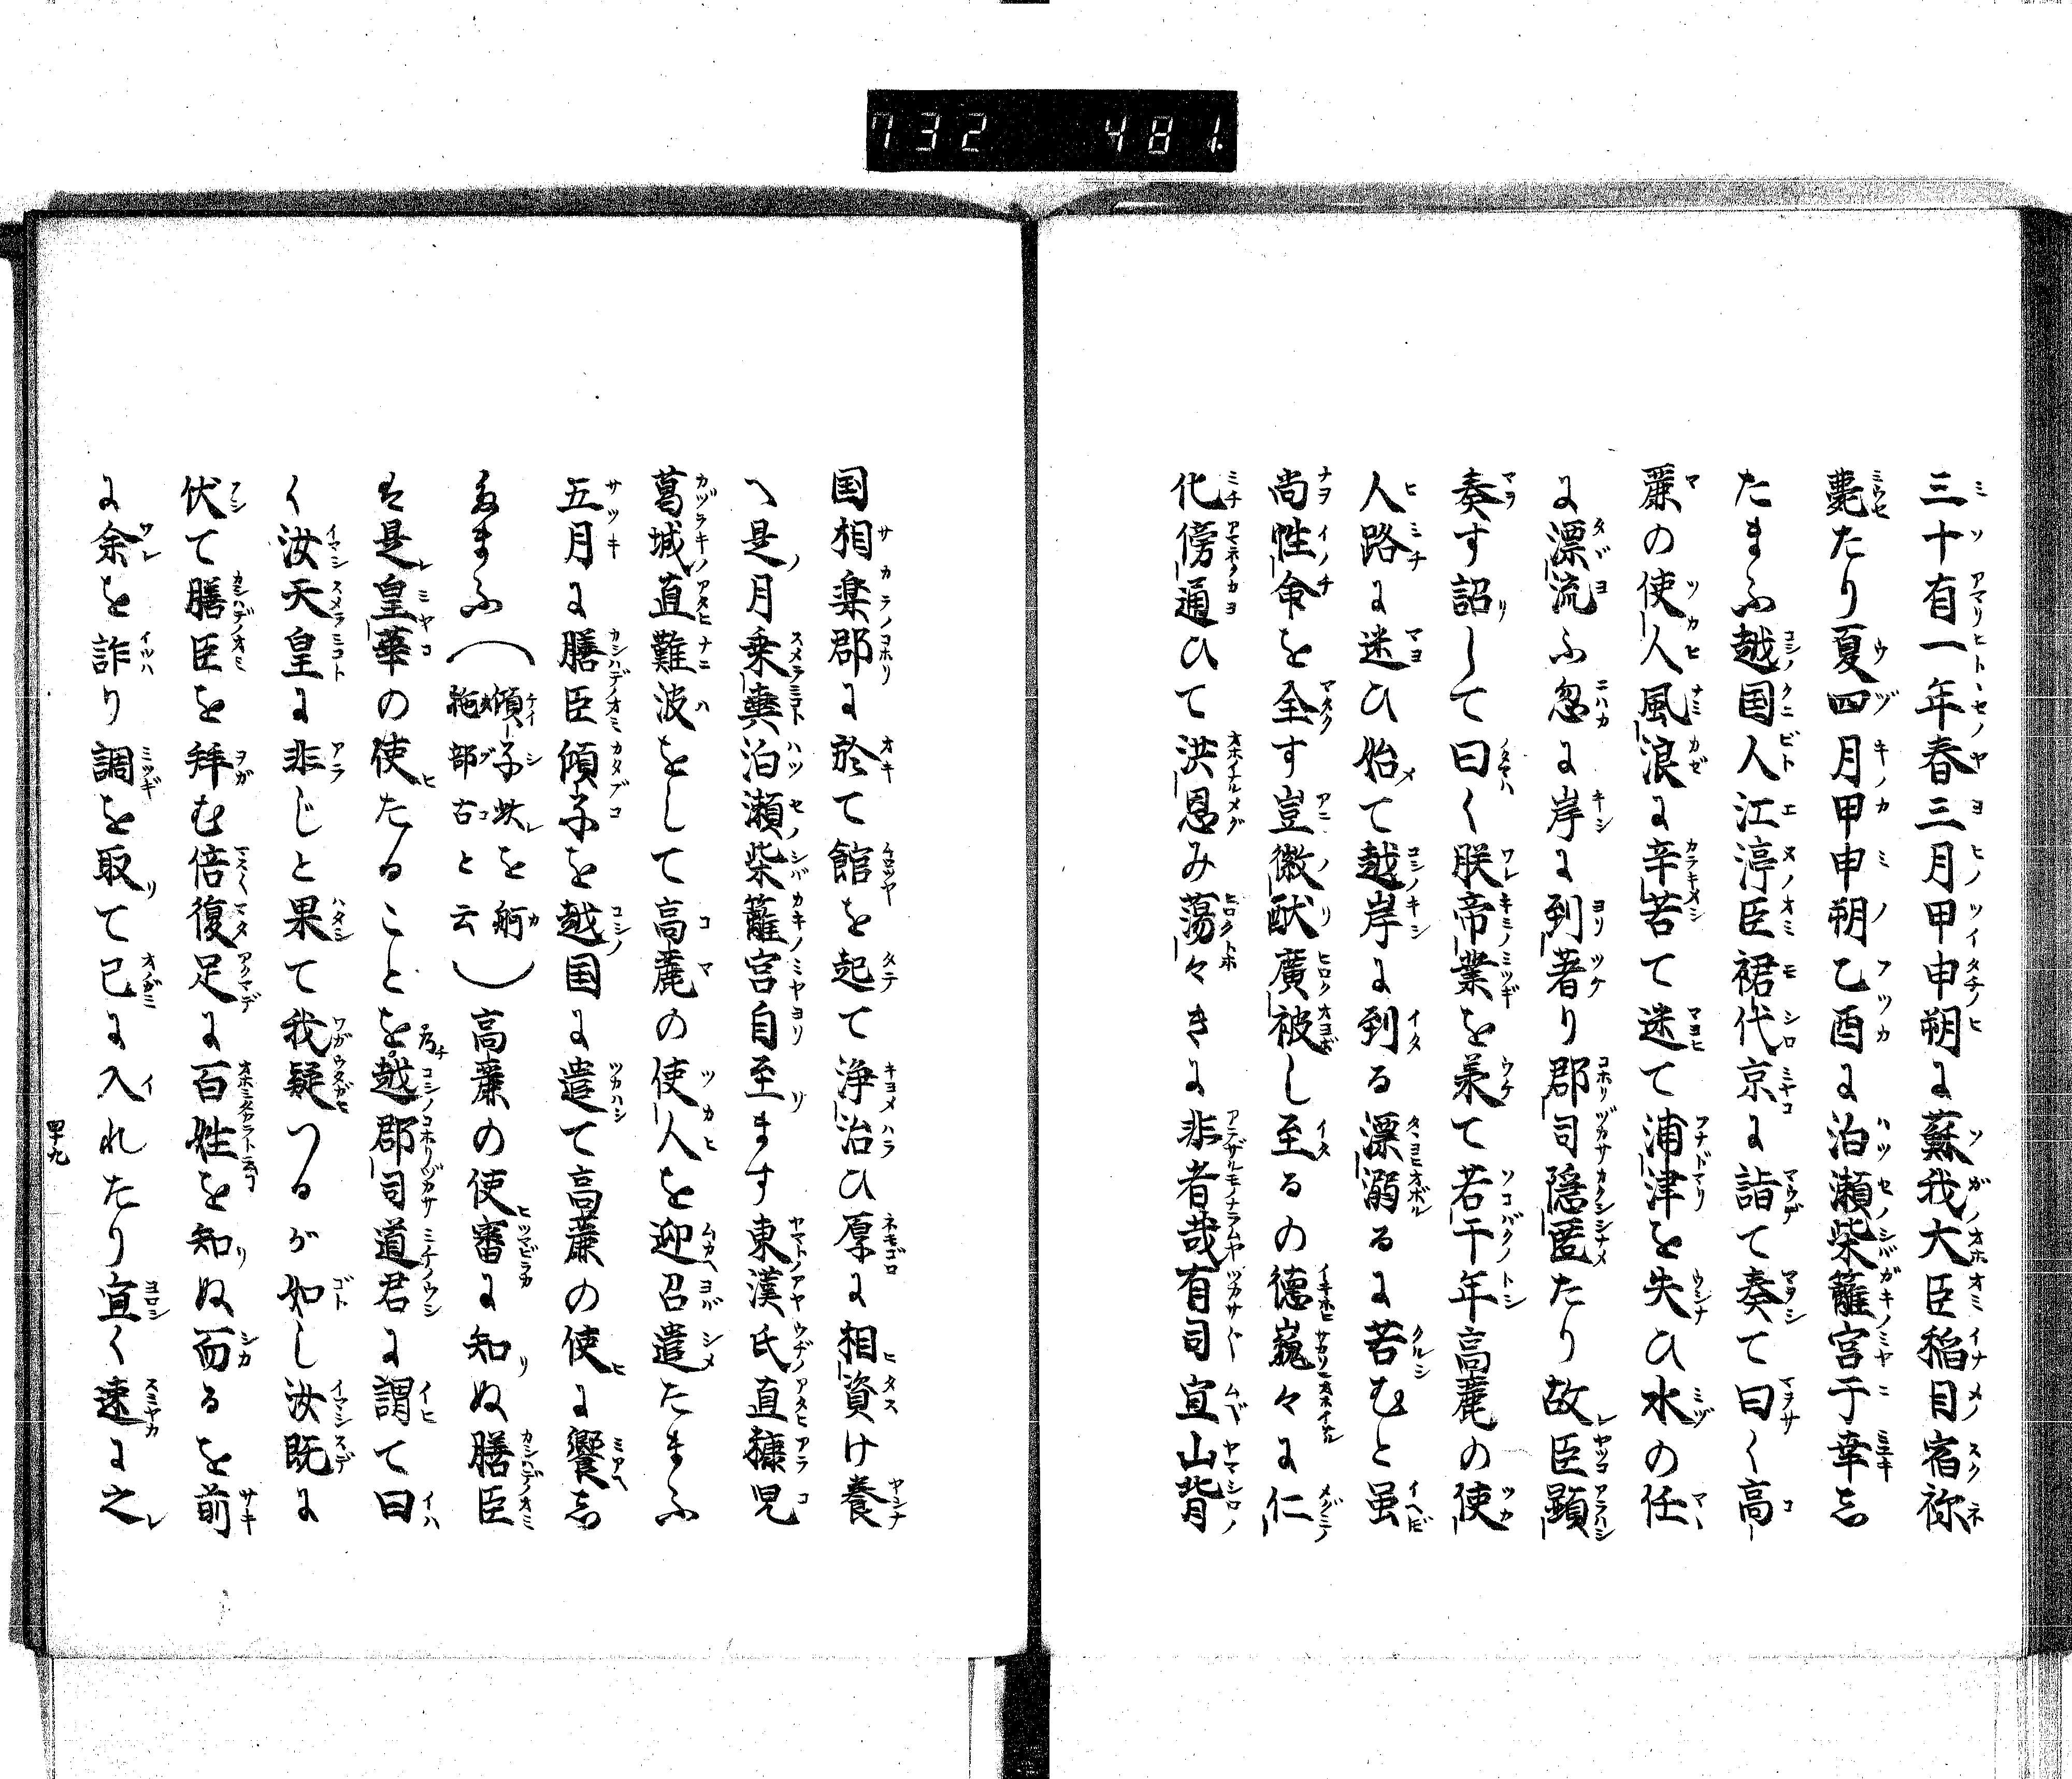 732 481.
三十有一年春三月甲申朔に蘇我大臣稲目宿祢
薨たり夏四月甲申朔乙酉に泊瀬柴籬宮于幸し
たまふ越国人江渟臣裙代京に詣て奏て曰く高
麗の使人風浪に辛苦て迷て浦津を失ひ水の任
に漂流ふ忽に岸に到着り郡司隠匿たり故臣顕
奏す詔して曰く朕帝業を承て若干年高麗の使
人路に迷ひ始て越岸に到る漂溺るに苦むと虽
尚性命を全す豈徽猷廣被し至るの徳巍々に仁
化傍通ひて洪恩み蕩々きに非者哉有司宜山背
国相楽郡に於て館を起て浄治ひ厚に相資け養
へ是月乗輿泊瀬柴籬宮自至ます東漢氏直糠児
葛城直難波をして高麗の使人を迎召遣たまふ
五月に膳臣傾子を越国に遣て高麗の使に饗し
たまふ（傾子此を舸拕部古と云）高麗の使審に知ぬ膳臣
は是皇華の使たることを乃越郡司道君に謂て曰
く汝天皇に非じと果て我疑つるが如し汝既に
伏て膳臣を拝む倍復足に百姓を知ぬ而るを前
に余を詐り調を取て己に入れたり宜く速に之
四十九